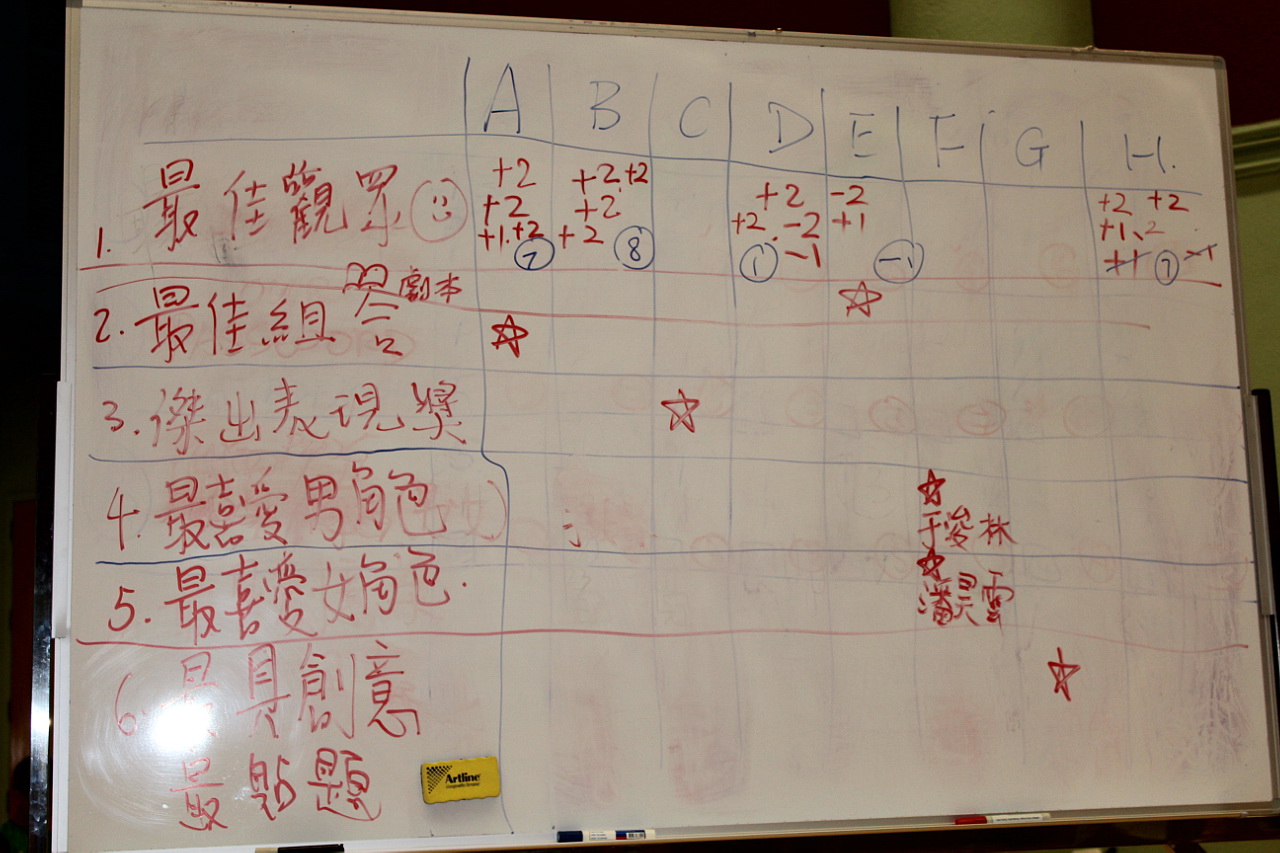 A B C D E F G H
1. 最佳觀眾 +2 +2 +1 +2 7 +2 +2 +2 +2 8 +2 +2 -2 -1 1 -2 +1 -1 +2 +2 +1 2 +1 7 -1
2. 最佳組合 劇本
3. 傑出表現獎
4. 最喜愛男角色 于浚林
5. 最喜愛女角色. 潘昊雲
6. 最具創意
最點題
Artline